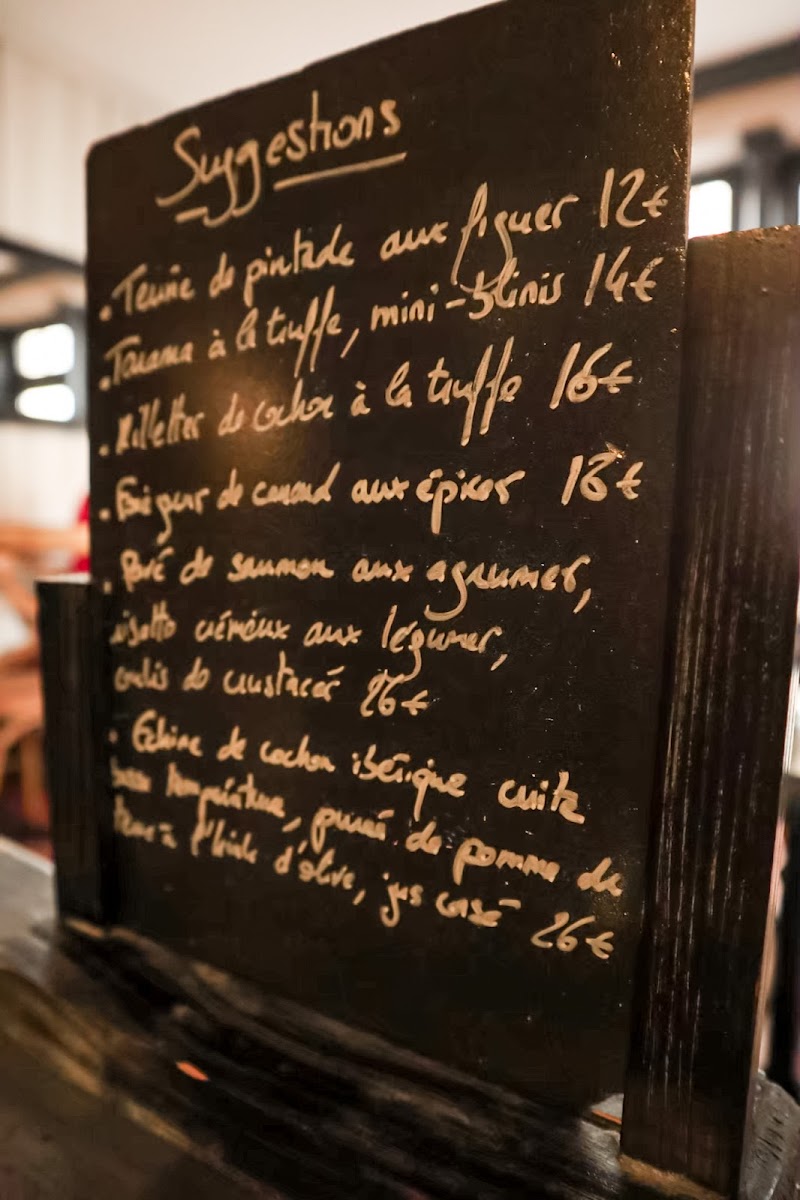 Suggestions
. Terrine de pintade aux figues 12€
. Tarama à la truffe, mini-blinis 14€
. Rillettes de cochon à la truffe 16€
. Foie gras de canard aux épices 18€
. Pavé de saumon aux agrumes,
risotto crémeux aux légumes,
coulis de crustacés 26€
. Echine de cochon ibérique cuite
basse température, purée de pomme de
terre à l'huile d'olive, jus corsé 26€